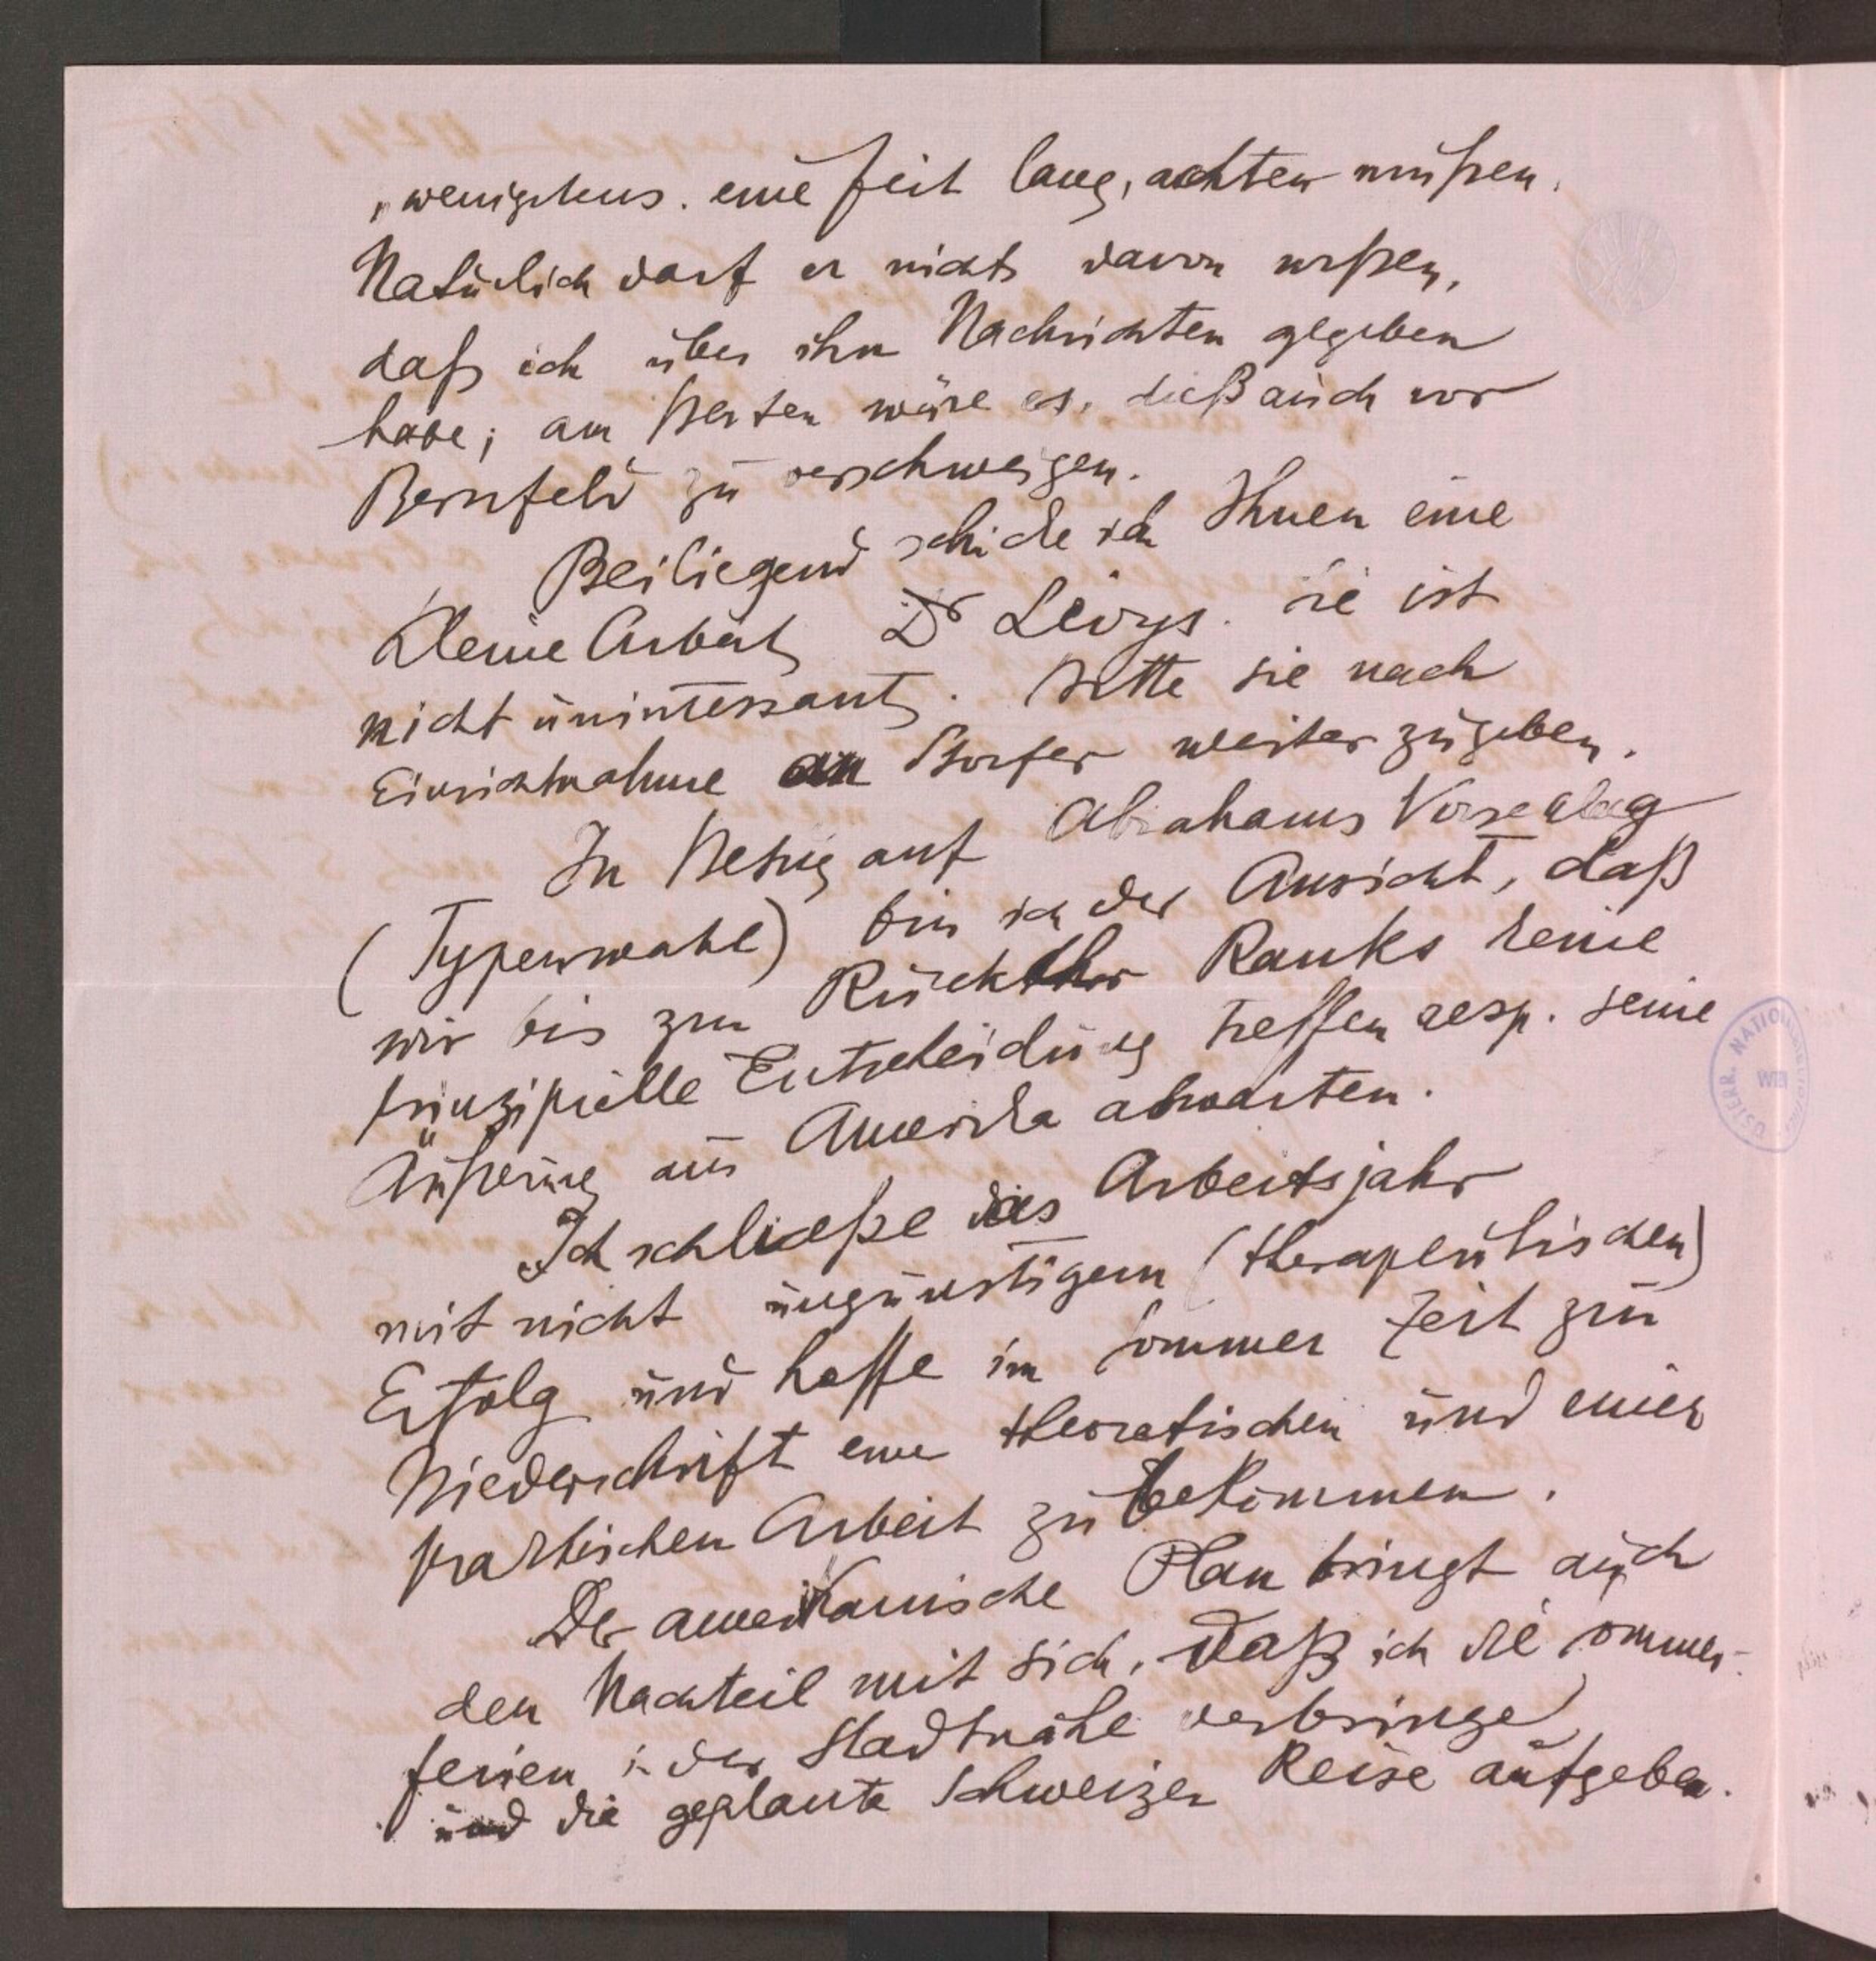 , wenigstens. eine Zeit lang, achten müßen.
Natürlich darf er nichts davon wißen,
daß ich über ihn Nachrichten gegeben
habe; am Besten wäre es, dieß auch vor
Bernfeld zu verschweigen.
Beiliegend schicke ich Ihnen eine
kleine Arbeit Dr Lévys. Sie ist
nicht uninteressant. Bitte sie nach
Einsichtnahme an Storfer weiterzugeben.
In Bezug auf Abrahams Vorschlag
(Typenwahl) bin ich der Ansicht, daß
wir bis zur Rückkehr Ranks keine
prinzipielle Entscheidung treffen resp. seine
Äußerung aus Amerika abwarten.
Ich schließe das Arbeitsjahr
mit nicht ungünstigem (therapeutischen)
Erfolg und hoffe im Sommer Zeit zur
Niederschrift einer theoretischen und einer
praktischen Arbeit zu bekommen.
Der amerikanische Plan bringt auch
den Nachteil mit sich, daß ich die Sommer-
ferien in der Stadtnähe verbringe
und die geplante Schweizer Reise aufgebe.
ÖSTERR. NATIONALBIBLIOTHEK
WIEN